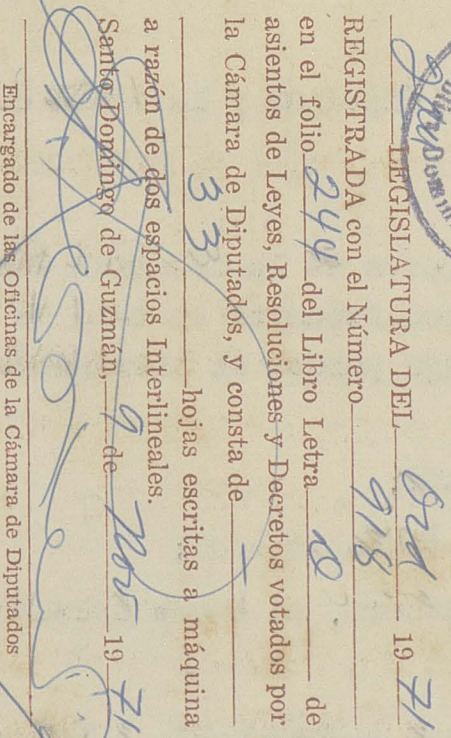 2 LEGISLATURA DEL Ord 1971
REGISTRADA con el Número 918
en el folio 244 del Libro Letra O de
asientos de Leyes, Resoluciones y Decretos votados por
la Cámara de Diputados, y consta de
33 hojas escritas a máquina
a razón de dos espacios Interlineales.
Santo Domingo de Guzmán, 9 de Nov 1971
Encargado de las Oficinas de la Cámara de Diputados